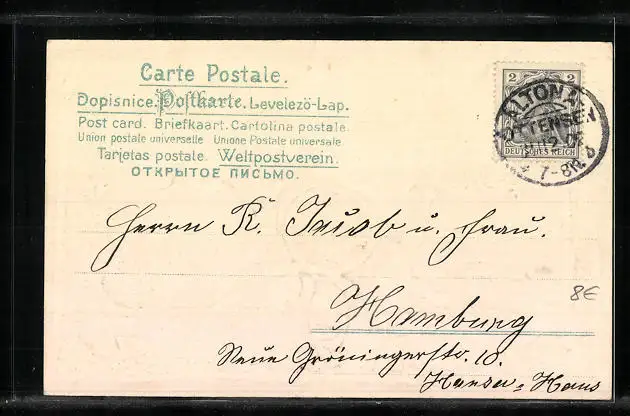 Carte Postale.
Dopisnice. Postkarte. Levelezö-Lap.
Post card. Briefkaart. Cartolina postale.
Union postale universelle Unione Postale universale
Tarjetas postale. Weltpostverein.
ОТКРЫТОЕ ПИСЬМО.
2 2
DEUTSCHES REICH
ALTONA
OTTENSEN
7-8N.
Herrn R. Jacob u. Frau.
Hamburg
8€
Neue Gröningerstr. 10.
Hansa-Haus